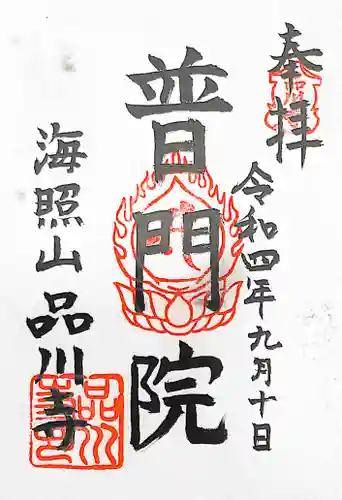 奉拝
令和四年九月十日
普門院
海照山品川寺